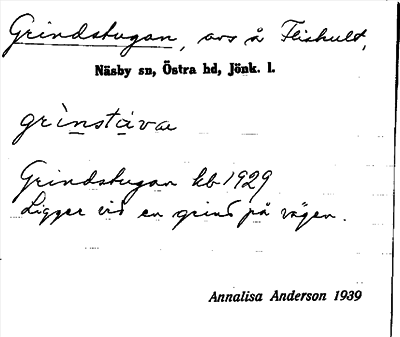 Grindstugan, avs å Fliskult,
Näsby sn, Östra hd, Jönk. l.
grìnstáva
Grindstugan kb 1929
Ligger vid en grind på vägen.
Annalisa Anderson 1939